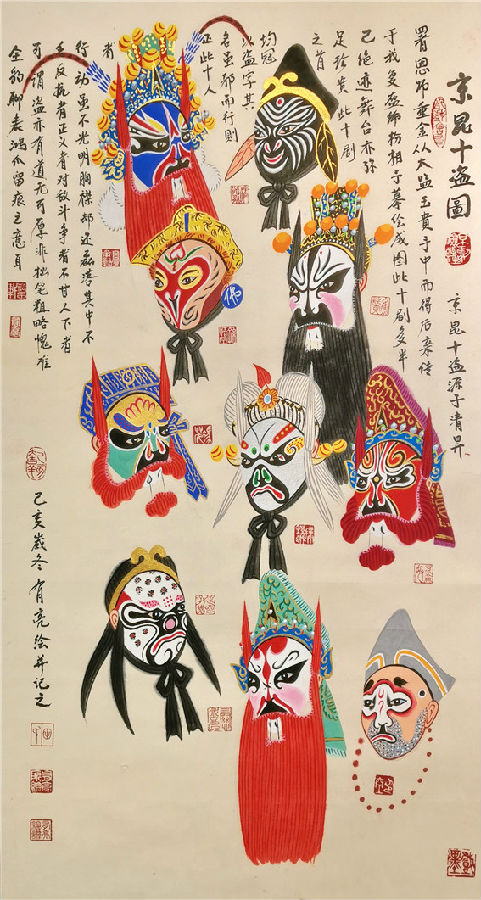 京昆十盗圖
京昆十盗源于清昇
署恩师垂金从太监玉貴手中而得后来传
于我 恩师粉相子摹绘成图此十剧多半
已绝迹舞台亦弥
足珍贵此十剧
之首
均冠
以盗字其
名虽邪而行则
正此十人
者
行动更不光明胸襟都还磊落其中不
乏反抗者正义者对敌斗争者不甘人下者
可谓盗亦有道无可厚非拙笔粗略愧难
全豹聊表鸿爪留痕之意耳
佛
己亥歲冬有亮绘并记之